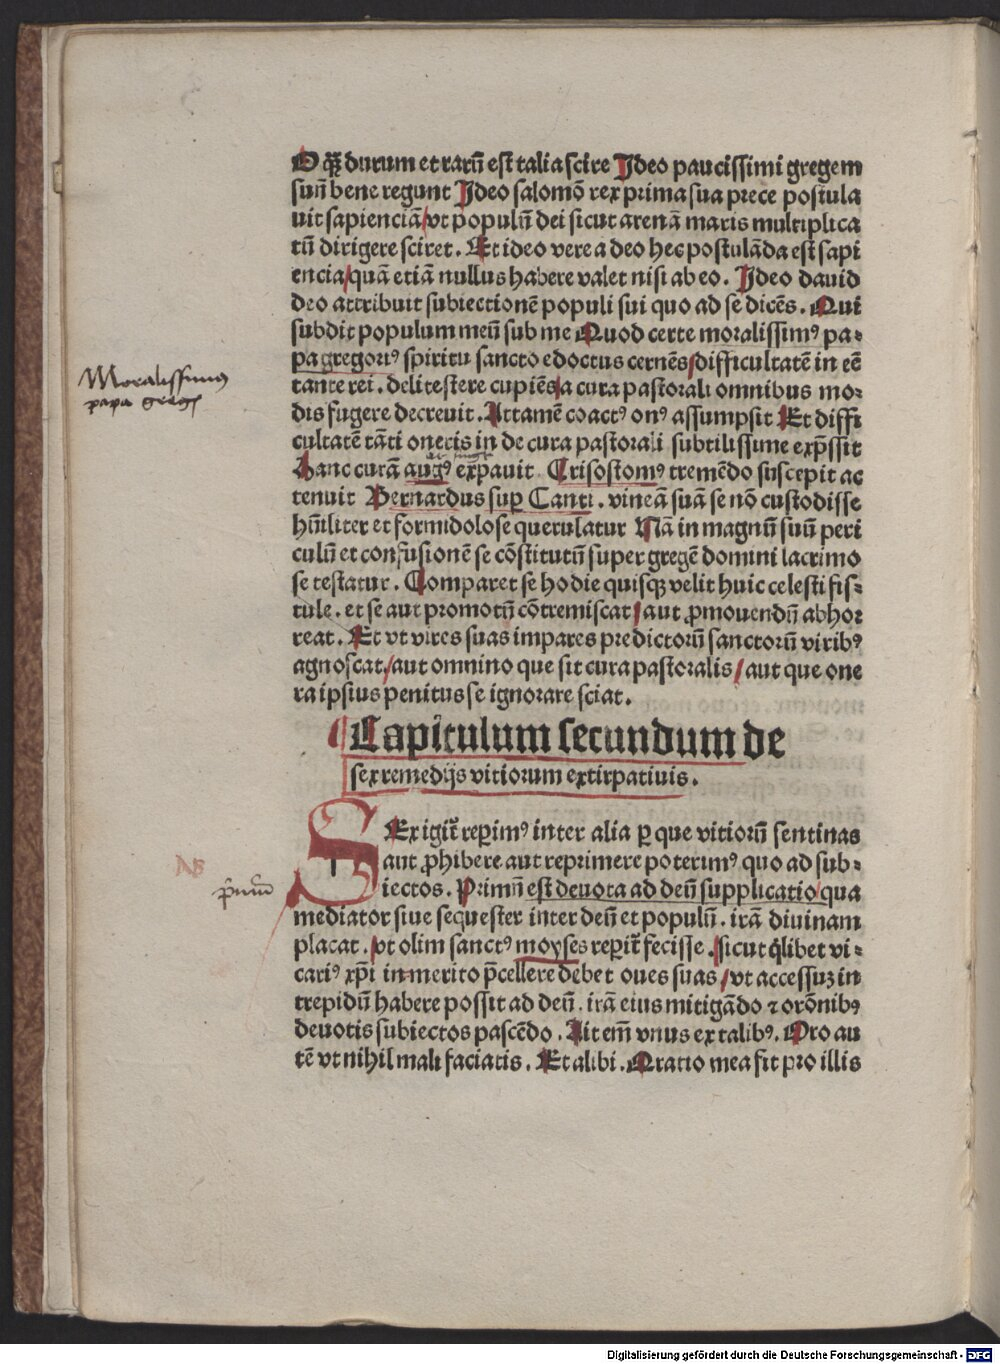 O qȝ durum et rarū est talia scire Ideo paucissimi gregem
suū bene regunt Ideo salomō rex prima sua prece postula
uit sapienciā/vt populū dei sicut arenā maris multiplica
tū dirigere sciret. Et ideo vere a deo hec postulāda est sapi
encia/quā etiā nullus habere valet nisi ab eo. Ideo dauid
deo attribuit subiectionē populi sui quo ad se dicēs. Qui
subdit populum meū sub me Quod certe moralissimꝰ pa-
pa gregoriꝰ spiritu sancto edoctus cernēs/difficultatē in eē
tante rei. delitestere cupiēs/a cura pastorali omnibus mo-
dis fugere decreuit. Attamē coactꝰ onꝰ assumpsit Et diffi
cultatē tāti oneris in de cura pastorali subtilissime exp̄ssit
Hanc curā augꝰ expauit Crisostomꝰ tremēdo suscepit ac
tenuit Bernardus suꝑ Canti. vineā suā se nō custodisse
hūliter et formidolose querulatur Nā in magnū suū peri
culū et confusionē se cōstitutū super gregē domini lacrimo
se testatur. Comparet se hodie quisqȝ velit huic celesti fis-
tule. et se aut promotū cōtremiscat/aut ꝓmouendū abhor
reat. Et vt vires suas impares predictorū sanctorū viribꝰ
agnoscat/aut omnino que sit cura pastoralis/aut que one
ra ipsius penitus se ignorare sciat.
Moralissimus
papa greg
Capitulum secundum de
sex remedijs vitiorum extirpatiuis.
SExigit̄ reꝑimꝰ inter alia ꝑ que vitiorū sentinas
aut ꝓhibere aut reprimere poterimꝰ quo ad sub-
iectos. Primū est deuota ad deū supplicatio/qua
mediator siue sequester inter deū et populū. irā diuinam
placat. vt olim sanctꝰ moyses reꝑit̄ fecisse. sicut q̄libet vi-
cariꝰ xp̄i inmerito p̄cellere debet oues suas/vt accessuȝ in
trepidū habere possit ad deū. irā eius mitigādo ⁊ orōnibꝰ
deuotis subiectos pascēdo. Ait em̄ vnus ex talibꝰ. Oro au
tē vt nihil mali faciatis. Et alibi. Oratio mea fit pro illis
NB
p̄mū
Digitalisierung gefördert durch die Deutsche Forschungsgemeinschaft - DFG